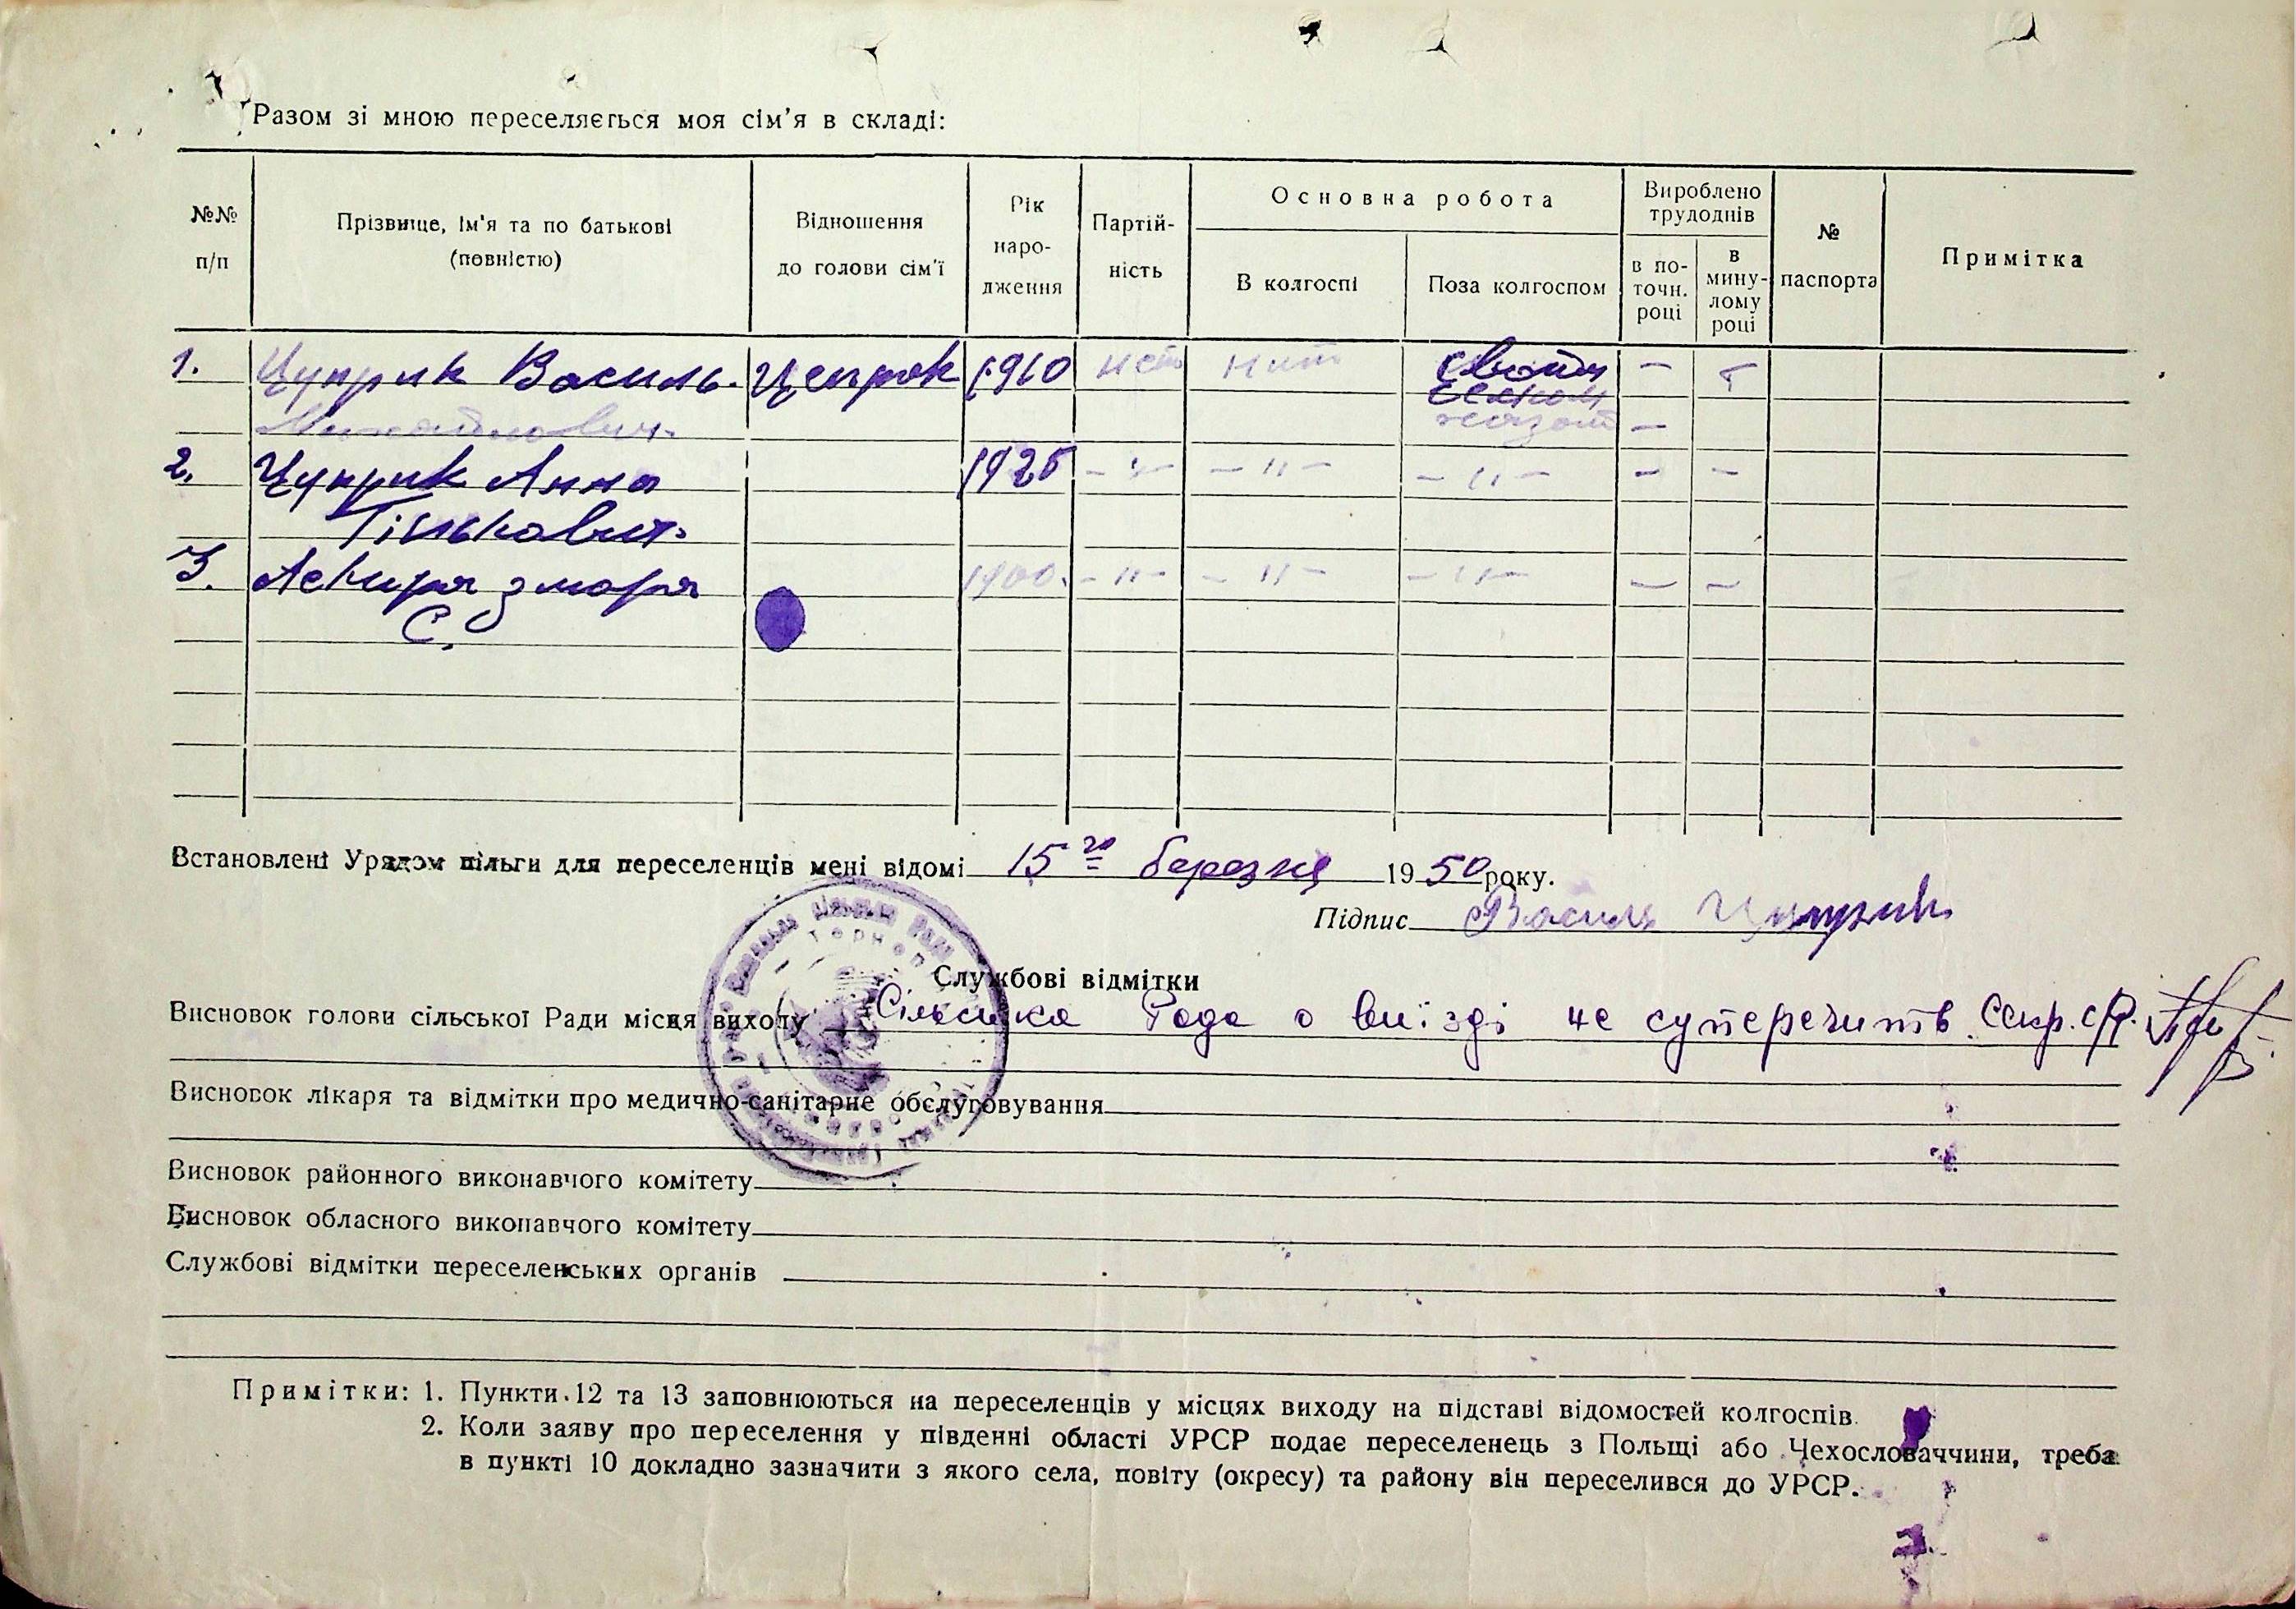 Разом зі мною переселяється моя сім'я в складі:
№№ п/п
Прізвище, ім'я та по батькові (повністю)
Відношення до голови сім'ї
Рік наро-дження
Партій-ність
Основна робота
В колгоспі
Поза колгоспом
Вироблено трудоднів
в по-точн. році
в мину-лому році
№ паспорта
Примітка
1. Цуприк Василь 1910 нет
Михайлович
2. Цуприк Анна 1925 - " - - " - - " - - -
3. 1900. - " - - " - - " - - -
С.
Встановлені Урядом пільги для переселенців мені відомі 15 го березня 1950 року.
Підпис Василь Цуприк
Службові відмітки
Висновок голови сільської Ради місця виходу Сільська Рада о виїзді не суперечить. Секр. с/Р.
Висновок лікаря та відмітки про медично-санітарне обслуговування
Висновок районного виконавчого комітету
Висновок обласного виконавчого комітету
Службові відмітки переселенських органів
Примітки: 1. Пункти 12 та 13 заповнюються на переселенців у місцях виходу на підставі відомостей колгоспів.
2. Коли заяву про переселення у південні області УРСР подає переселенець з Польщі або Чехословаччини, треба
в пункті 10 докладно зазначити з якого села, повіту (окресу) та району він переселився до УРСР.